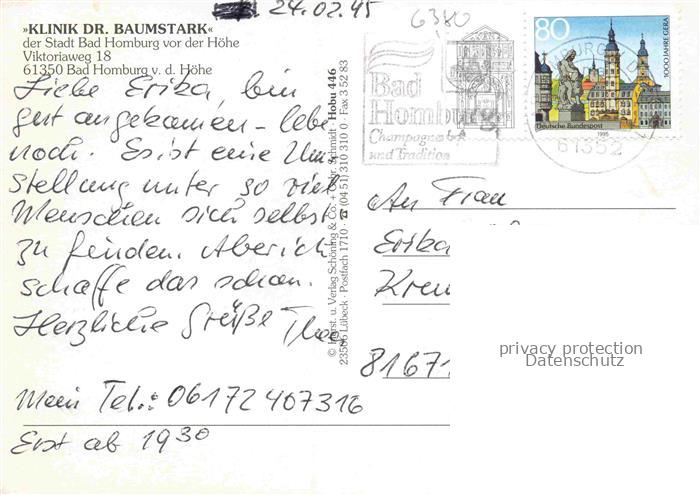 24.02.95
6380
»KLINIK DR. BAUMSTARK«
der Stadt Bad Homburg vor der Höhe
Viktoriaweg 18
61350 Bad Homburg v. d. Höhe
Liebe Erika, bin
gut angekommen – lebe
noch. Es ist eine Um
stellung unter so viel
Menschen sich selbst
zu finden. Aber ich
schaffe das schon.
Herzliche Grüße
Mein Tel.: 06172 407316
Erst ab 19³⁰
© Horst. u. Verlag Schöning & Co. + Gebr. Schmidt · Hobu 446
23506 Lübeck · Postfach 1710 · ☎ (04 51) 310 310 0 · Fax 3 52 83
Bad
Homburg
Champagnerluft
und Tradition
80
1000 JAHRE GERA
Deutsche Bundespost
1995
61352
An Frau
Erika
81671
privacy protection
Datenschutz